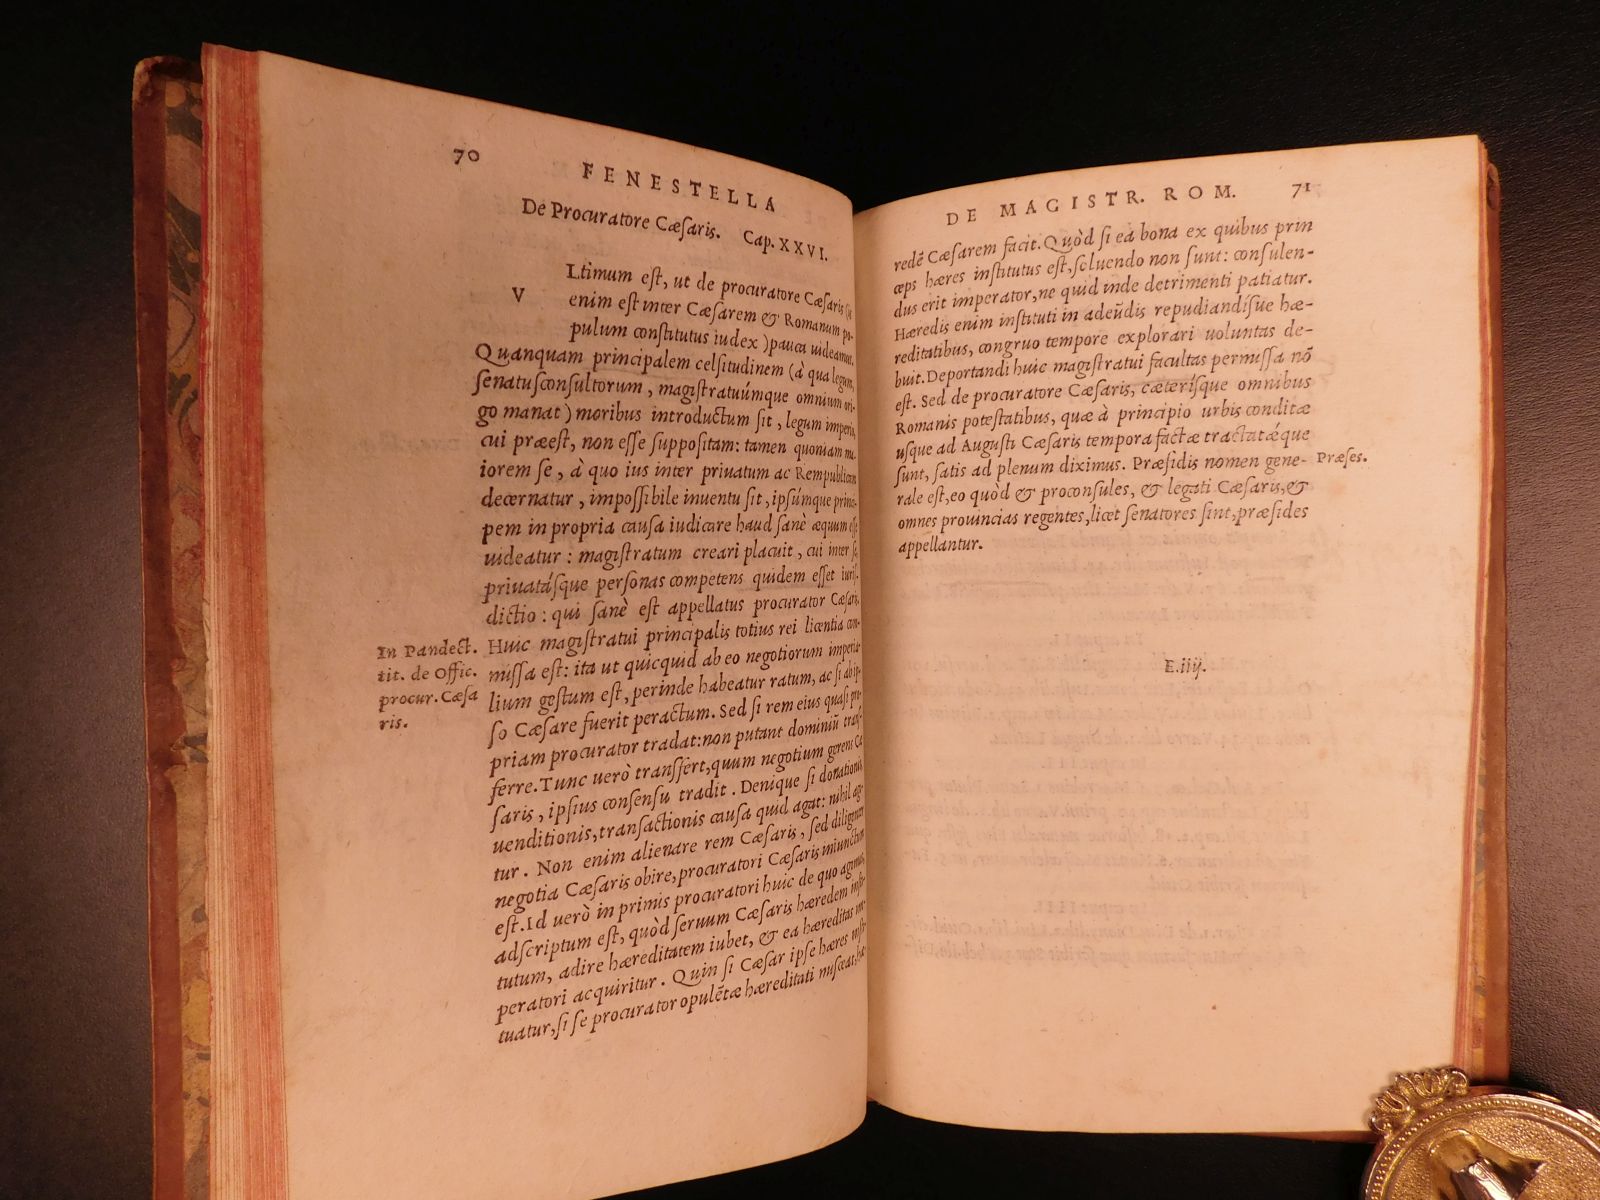 70
FENESTELLA
De Procuratore Cæsaris. Cap. XXVI.
V
Ltimum est, ut de procuratore Cæsaris (is
enim est inter Cæsarem & Romanum po-
pulum constitutus iudex) pauca uideamus.
Quanquam principalem celsitudinem (à qua legum,
senatusconsultorum, magistratuúmque omnium ori-
go manat) moribus introductum sit, legum imperio,
cui præest, non esse suppositam: tamen quoniam ma-
iorem se, à quo ius inter priuatum ac Rempublicam
decernatur, impossibile inuentu sit, ipsúmque princi-
pem in propria causa iudicare haud sanè æquum esse
uideatur: magistratum creari placuit, cui inter se,
priuatásque personas competens quidem esset iuris-
dictio: qui sanè est appellatus procurator Cæsaris.
Huic magistratui principalis totius rei licentia com-
missa est: ita ut quicquid ab eo negotiorum imperia-
lium gestum est, perinde habeatur ratum, ac si ab ip-
so Cæsare fuerit peractum. Sed si rem eius quasi pro-
priam procurator tradat: non putant dominiũ trans-
ferre. Tunc uerò transfert, quum negotium gerens Cæ-
saris, ipsius consensu tradit. Denique si donationis,
uenditionis, transactionis causa quid agat: nihil agi-
tur. Non enim alienare rem Cæsaris, sed diligenter
negotia Cæsaris obire, procuratori Cæsaris iniunctum
est. Id uerò in primis procuratori huic de quo agimus,
adscriptum est, quòd seruum Cæsaris hæredem insti-
tutum, adire hæreditatem iubet, & ea hæreditas im-
peratori acquiritur. Quin si Cæsar ipse hæres insti-
tuatur, si se procurator opulẽtæ hæreditati misceat, hæ-
In Pandect.
tit. de Offic.
procur. Cæsa
ris.
DE MAGISTR. ROM. 71
redẽ Cæsarem facit. Quòd si ea bona ex quibus prin
ceps hæres institutus est, soluendo non sunt: consulen-
dus erit imperator, ne quid inde detrimenti patiatur.
Hæredis enim instituti in adeũdis repudiandísue hæ-
reditatibus, congruo tempore explorari uoluntas de-
buit. Deportandi huic magistratui facultas permissa nõ
est. Sed de procuratore Cæsaris, cæterísque omnibus
Romanis potestatibus, quæ à principio urbis conditæ
usque ad Augusti Cæsaris tempora factæ tractatǽque
sunt, satis ad plenum diximus. Præsidis nomen gene-
rale est, eo quòd & proconsules, & legati Cæsaris, &
omnes prouincias regentes, licet senatores sint, præsides
appellantur.
Præses.
E.iiij.